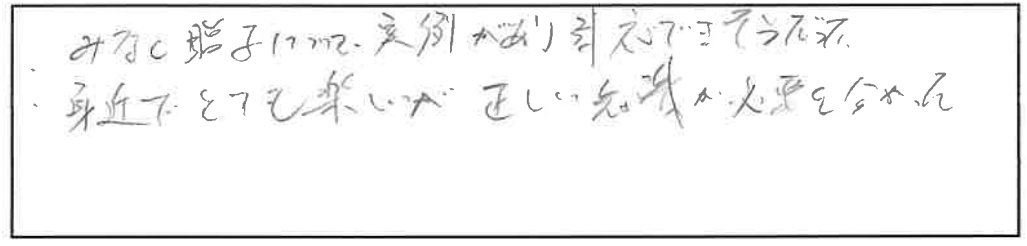 みなし贈与について、実例があり対応できそうだった。
身近でとても楽しいが正しい知識が必要と分かった